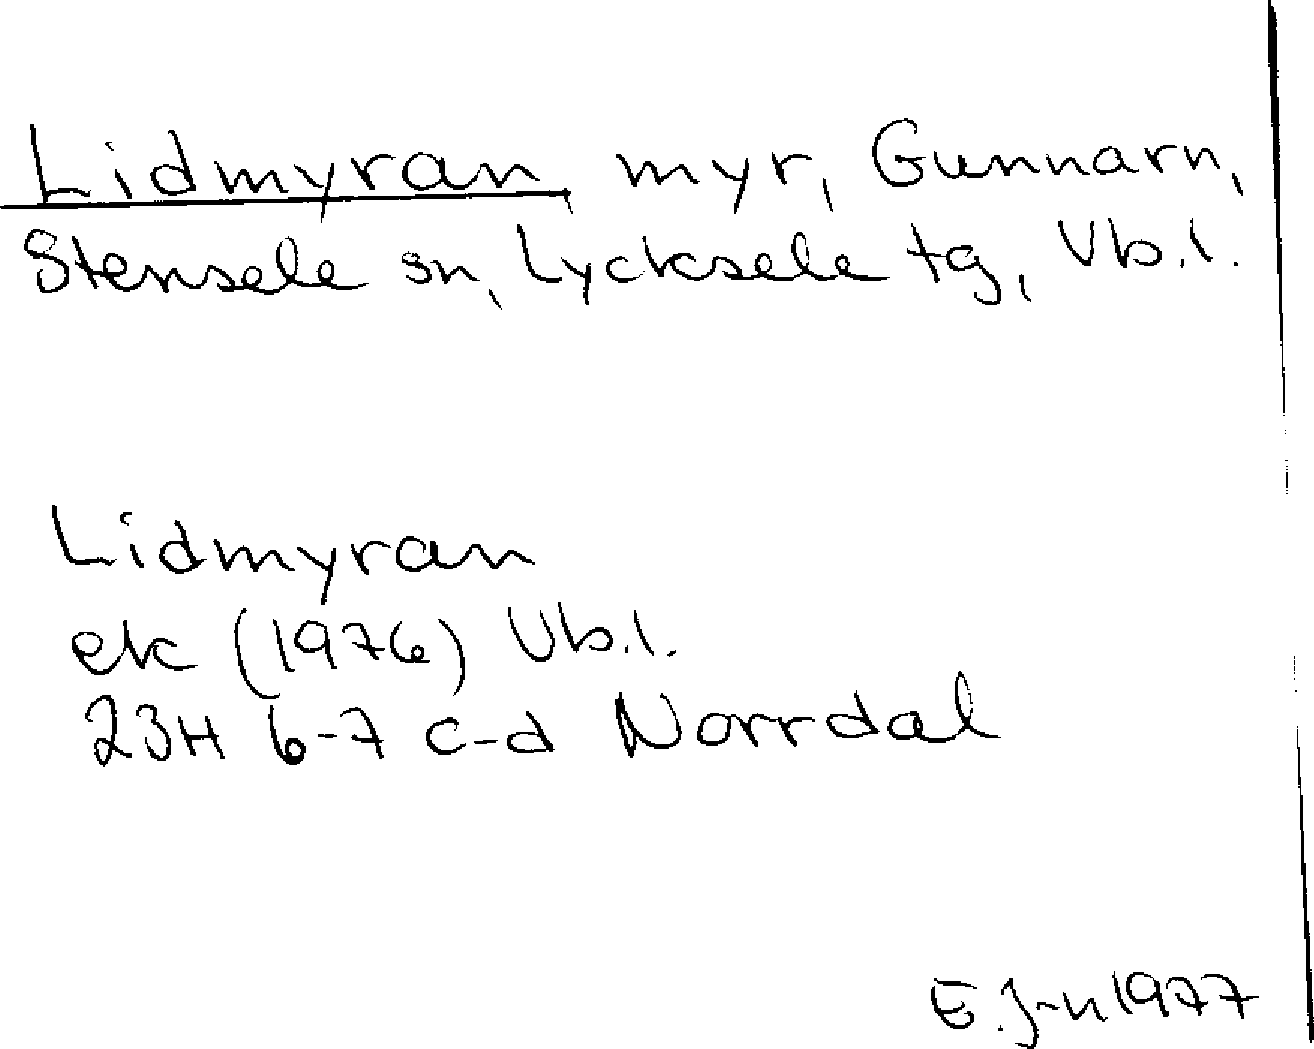 Lidmyran, myr, Gunnarn,
Stensele sn, Lycksele tg, Vb.l.
Lidmyran
ek (1976) Vb.l.
23H 6-7 c-d Norrdal
E.J-n 1977